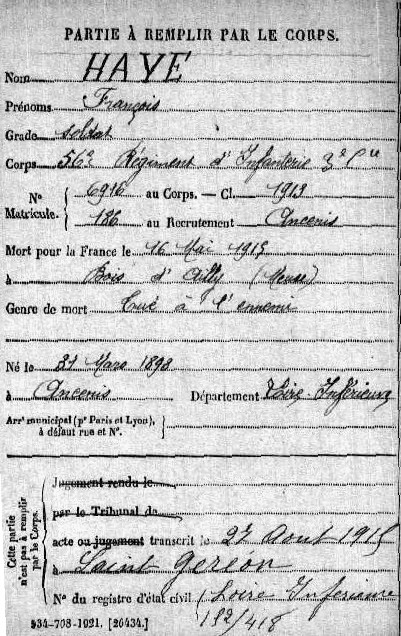 PARTIE À REMPLIR PAR LE CORPS.
Nom HAYE
Prénoms François
Grade soldat
Corps 56e Régiment d'Infanterie 3e Cie
N° Matricule. { 6916 au Corps. — Cl. 1913
186 au Recrutement Ancenis
Mort pour la France le 16 Mai 1915
à Bois d'Ailly (Meuse)
Genre de mort Tué à l'ennemi
Né le 31 Mars 1893
à Ancenis Département Loire-Inférieure
Arrt municipal (pr Paris et Lyon), à défaut rue et N°.
Cette partie n'est pas à remplir par le Corps.
Jugement rendu le
par le Tribunal de
acte ou jugement transcrit le 27 Août 1915
à Saint Géréon
N° du registre d'état civil (Loire Inférieure
192/418
534-708-1921. [26434.]